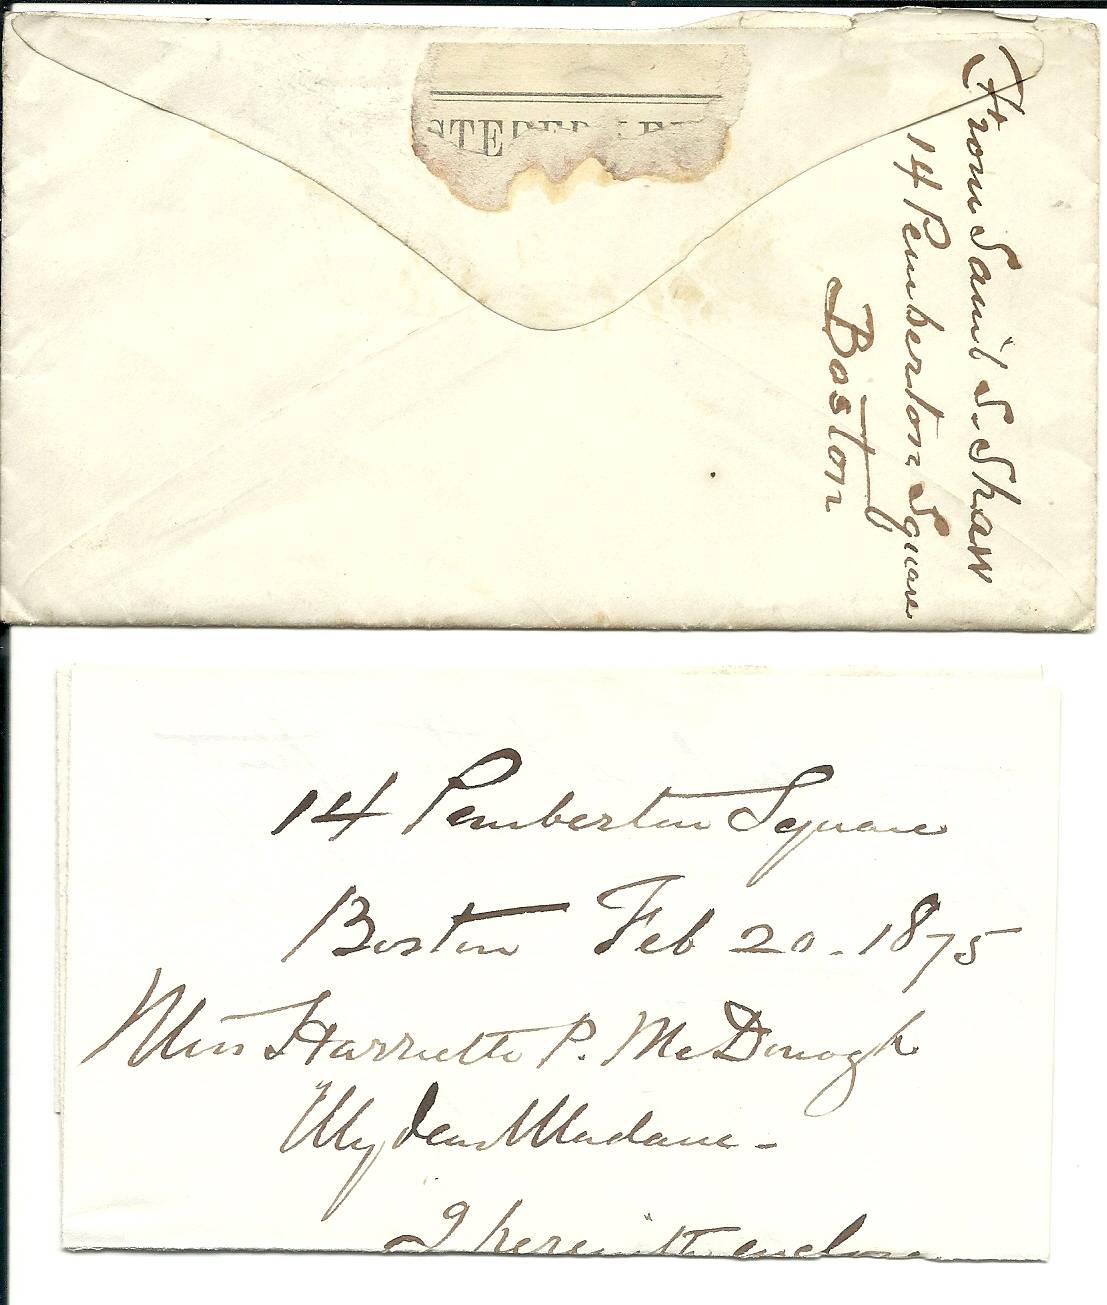 From Sam'l S. Shaw
14 Pemberton Square
Boston
14 Pemberton Square
Boston Feb 20. 1875
Miss Harriette P. McDonogh
My dear Madam -
I herewith enclose